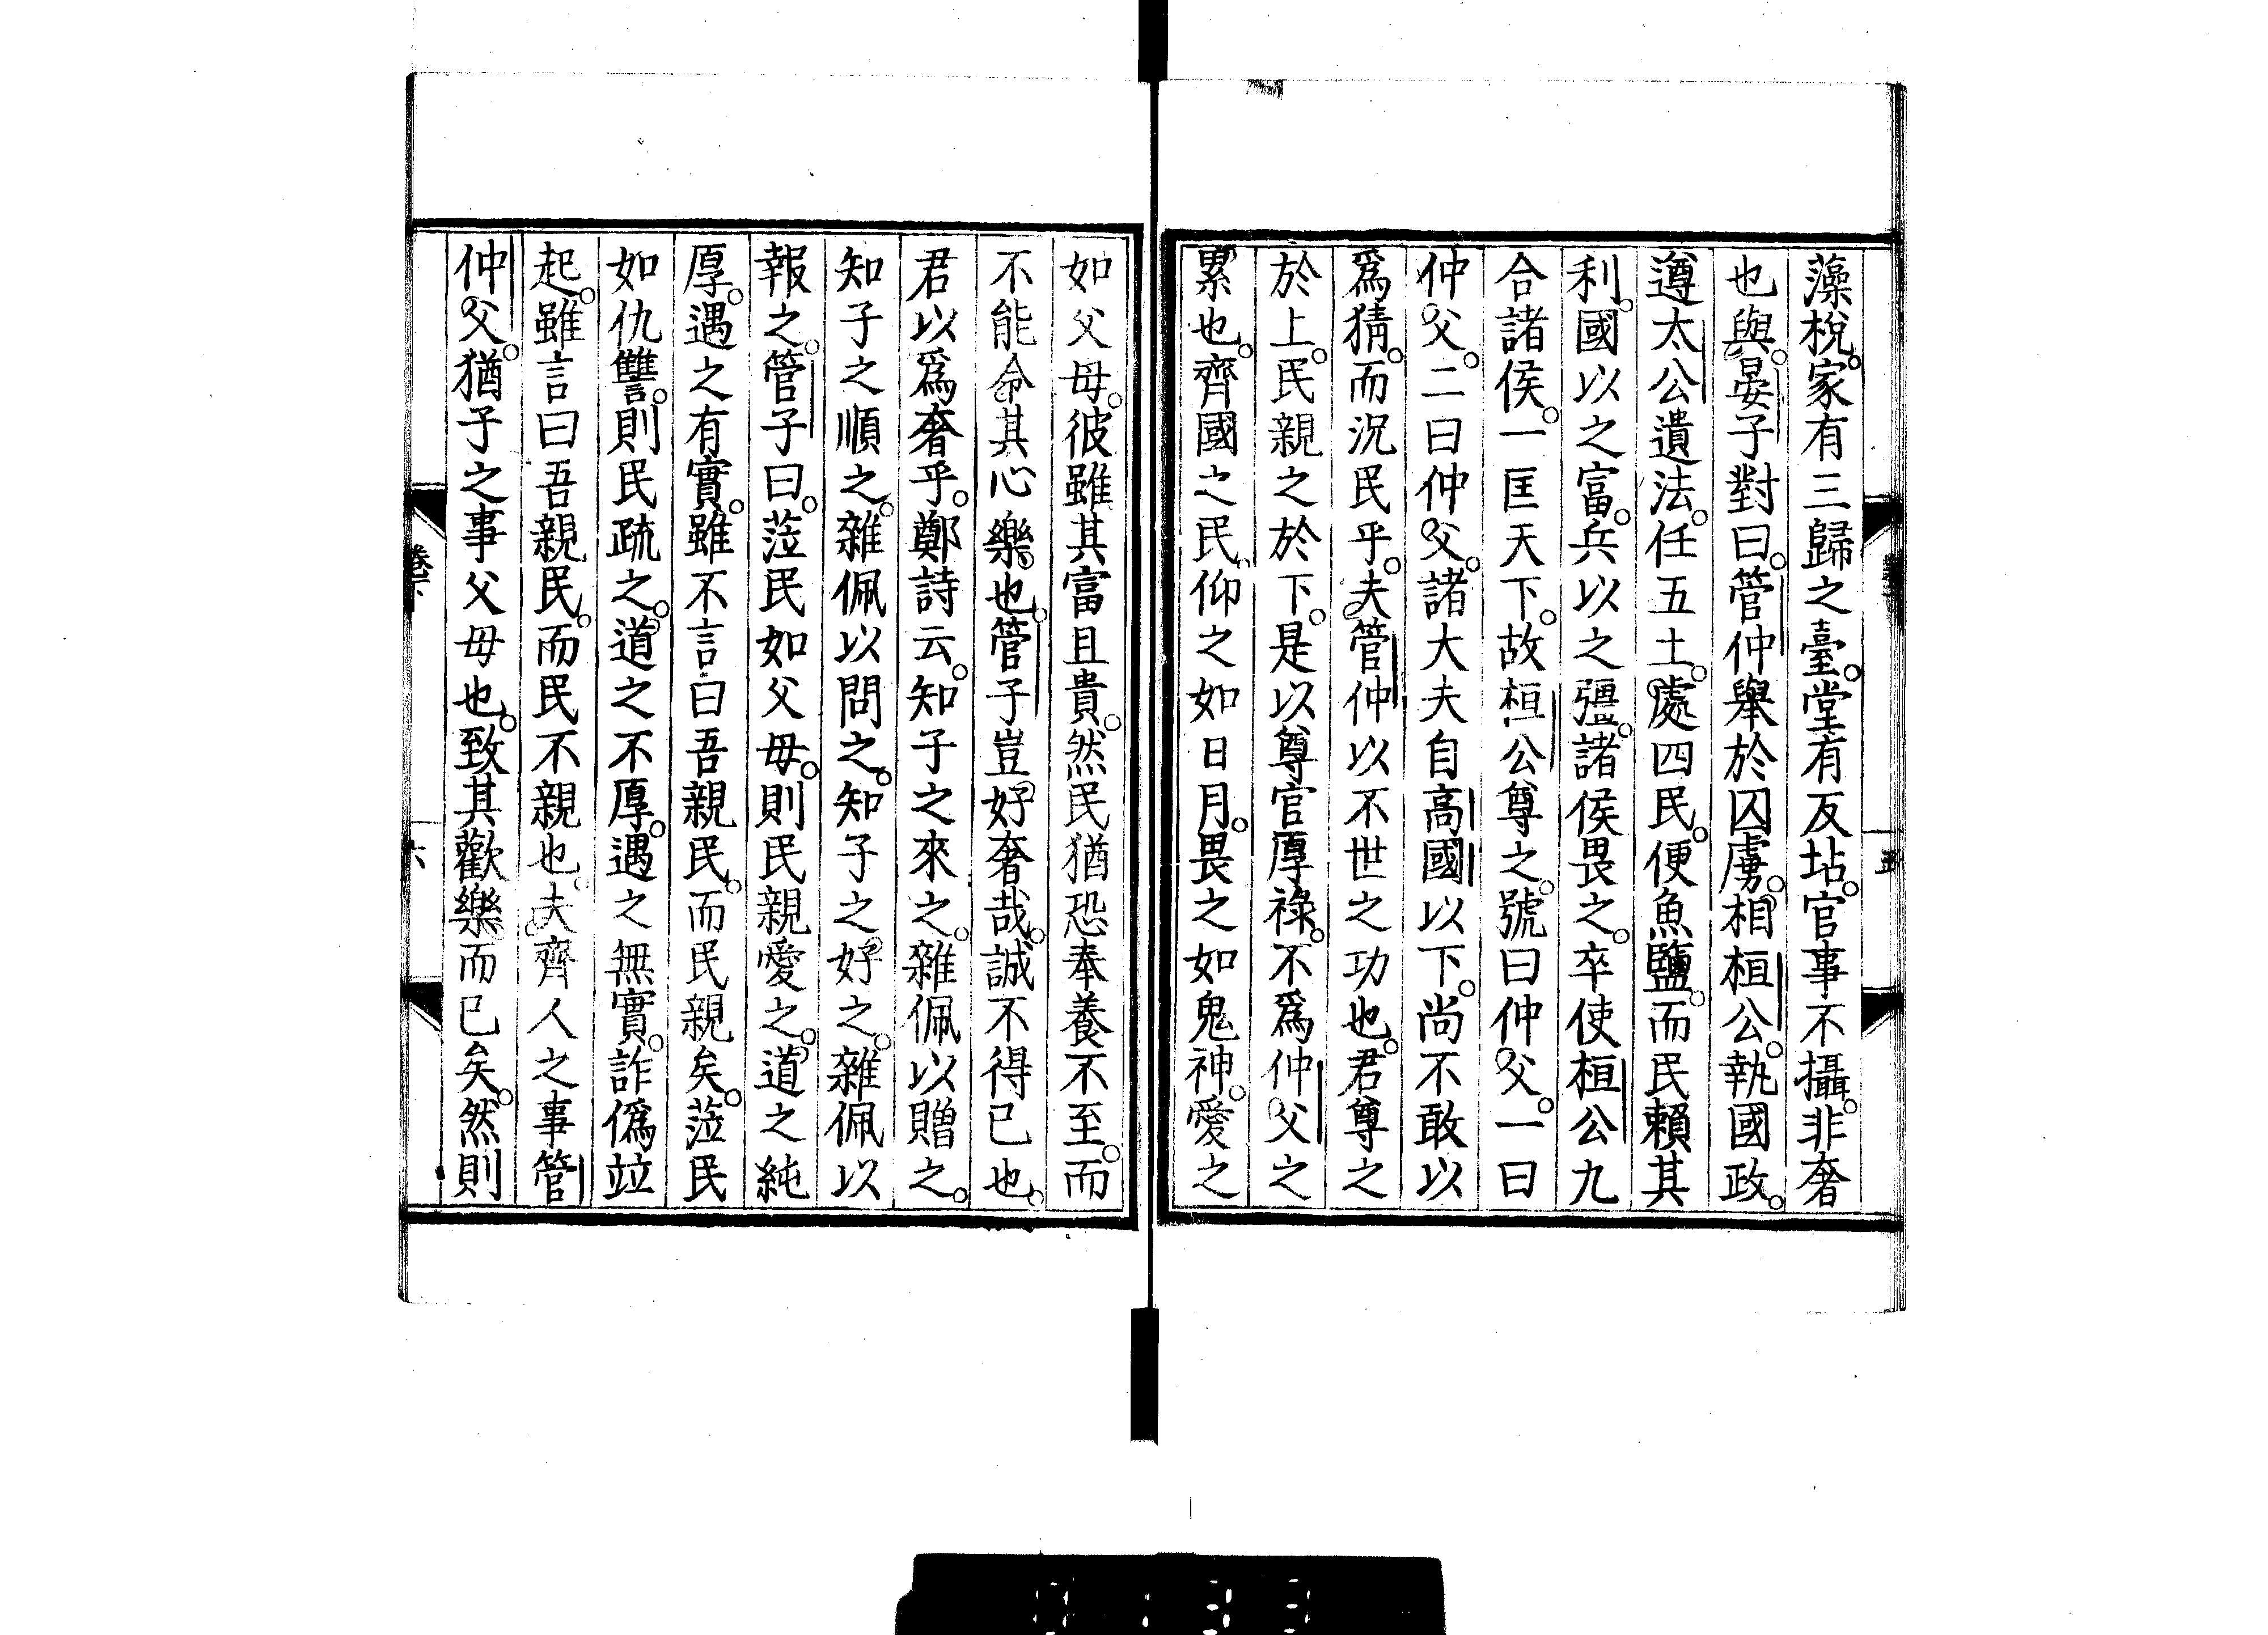 藻梲。家有三歸之臺。堂有反坫。官事不攝。非奢
也與。晏子對曰。管仲舉於囚虜。相桓公。執國政。
遵太公遺法。任五土。處四民。便魚鹽。而民賴其
利。國以之富。兵以之彊。諸侯畏之。卒使桓公九
合諸侯。一匡天下。故桓公尊之。號曰仲父。一曰
仲父。二曰仲父。諸大夫自高國以下。尚不敢以
爲猜。而況民乎。夫管仲以不世之功也。君尊之
於上。民親之於下。是以尊官厚祿。不爲仲父之
累也。齊國之民。仰之如日月。畏之如鬼神。愛之
五
如父母。彼雖其富且貴。然民猶恐奉養不至。而
不能命其心樂也。管子豈好奢哉。誠不得已也。
君以爲奢乎。鄭詩云。知子之來之。雜佩以贈之。
知子之順之。雜佩以問之。知子之好之。雜佩以
報之。管子曰。蒞民如父母。則民親愛之。道之純
厚。遇之有實。雖不言曰吾親民。而民親矣。蒞民
如仇讐。則民疏之。道之不厚。遇之無實。詐僞竝
起。雖言曰吾親民。而民不親也。夫齊人之事管
仲父。猶子之事父母也。致其歡樂而已矣。然則
卷下
六